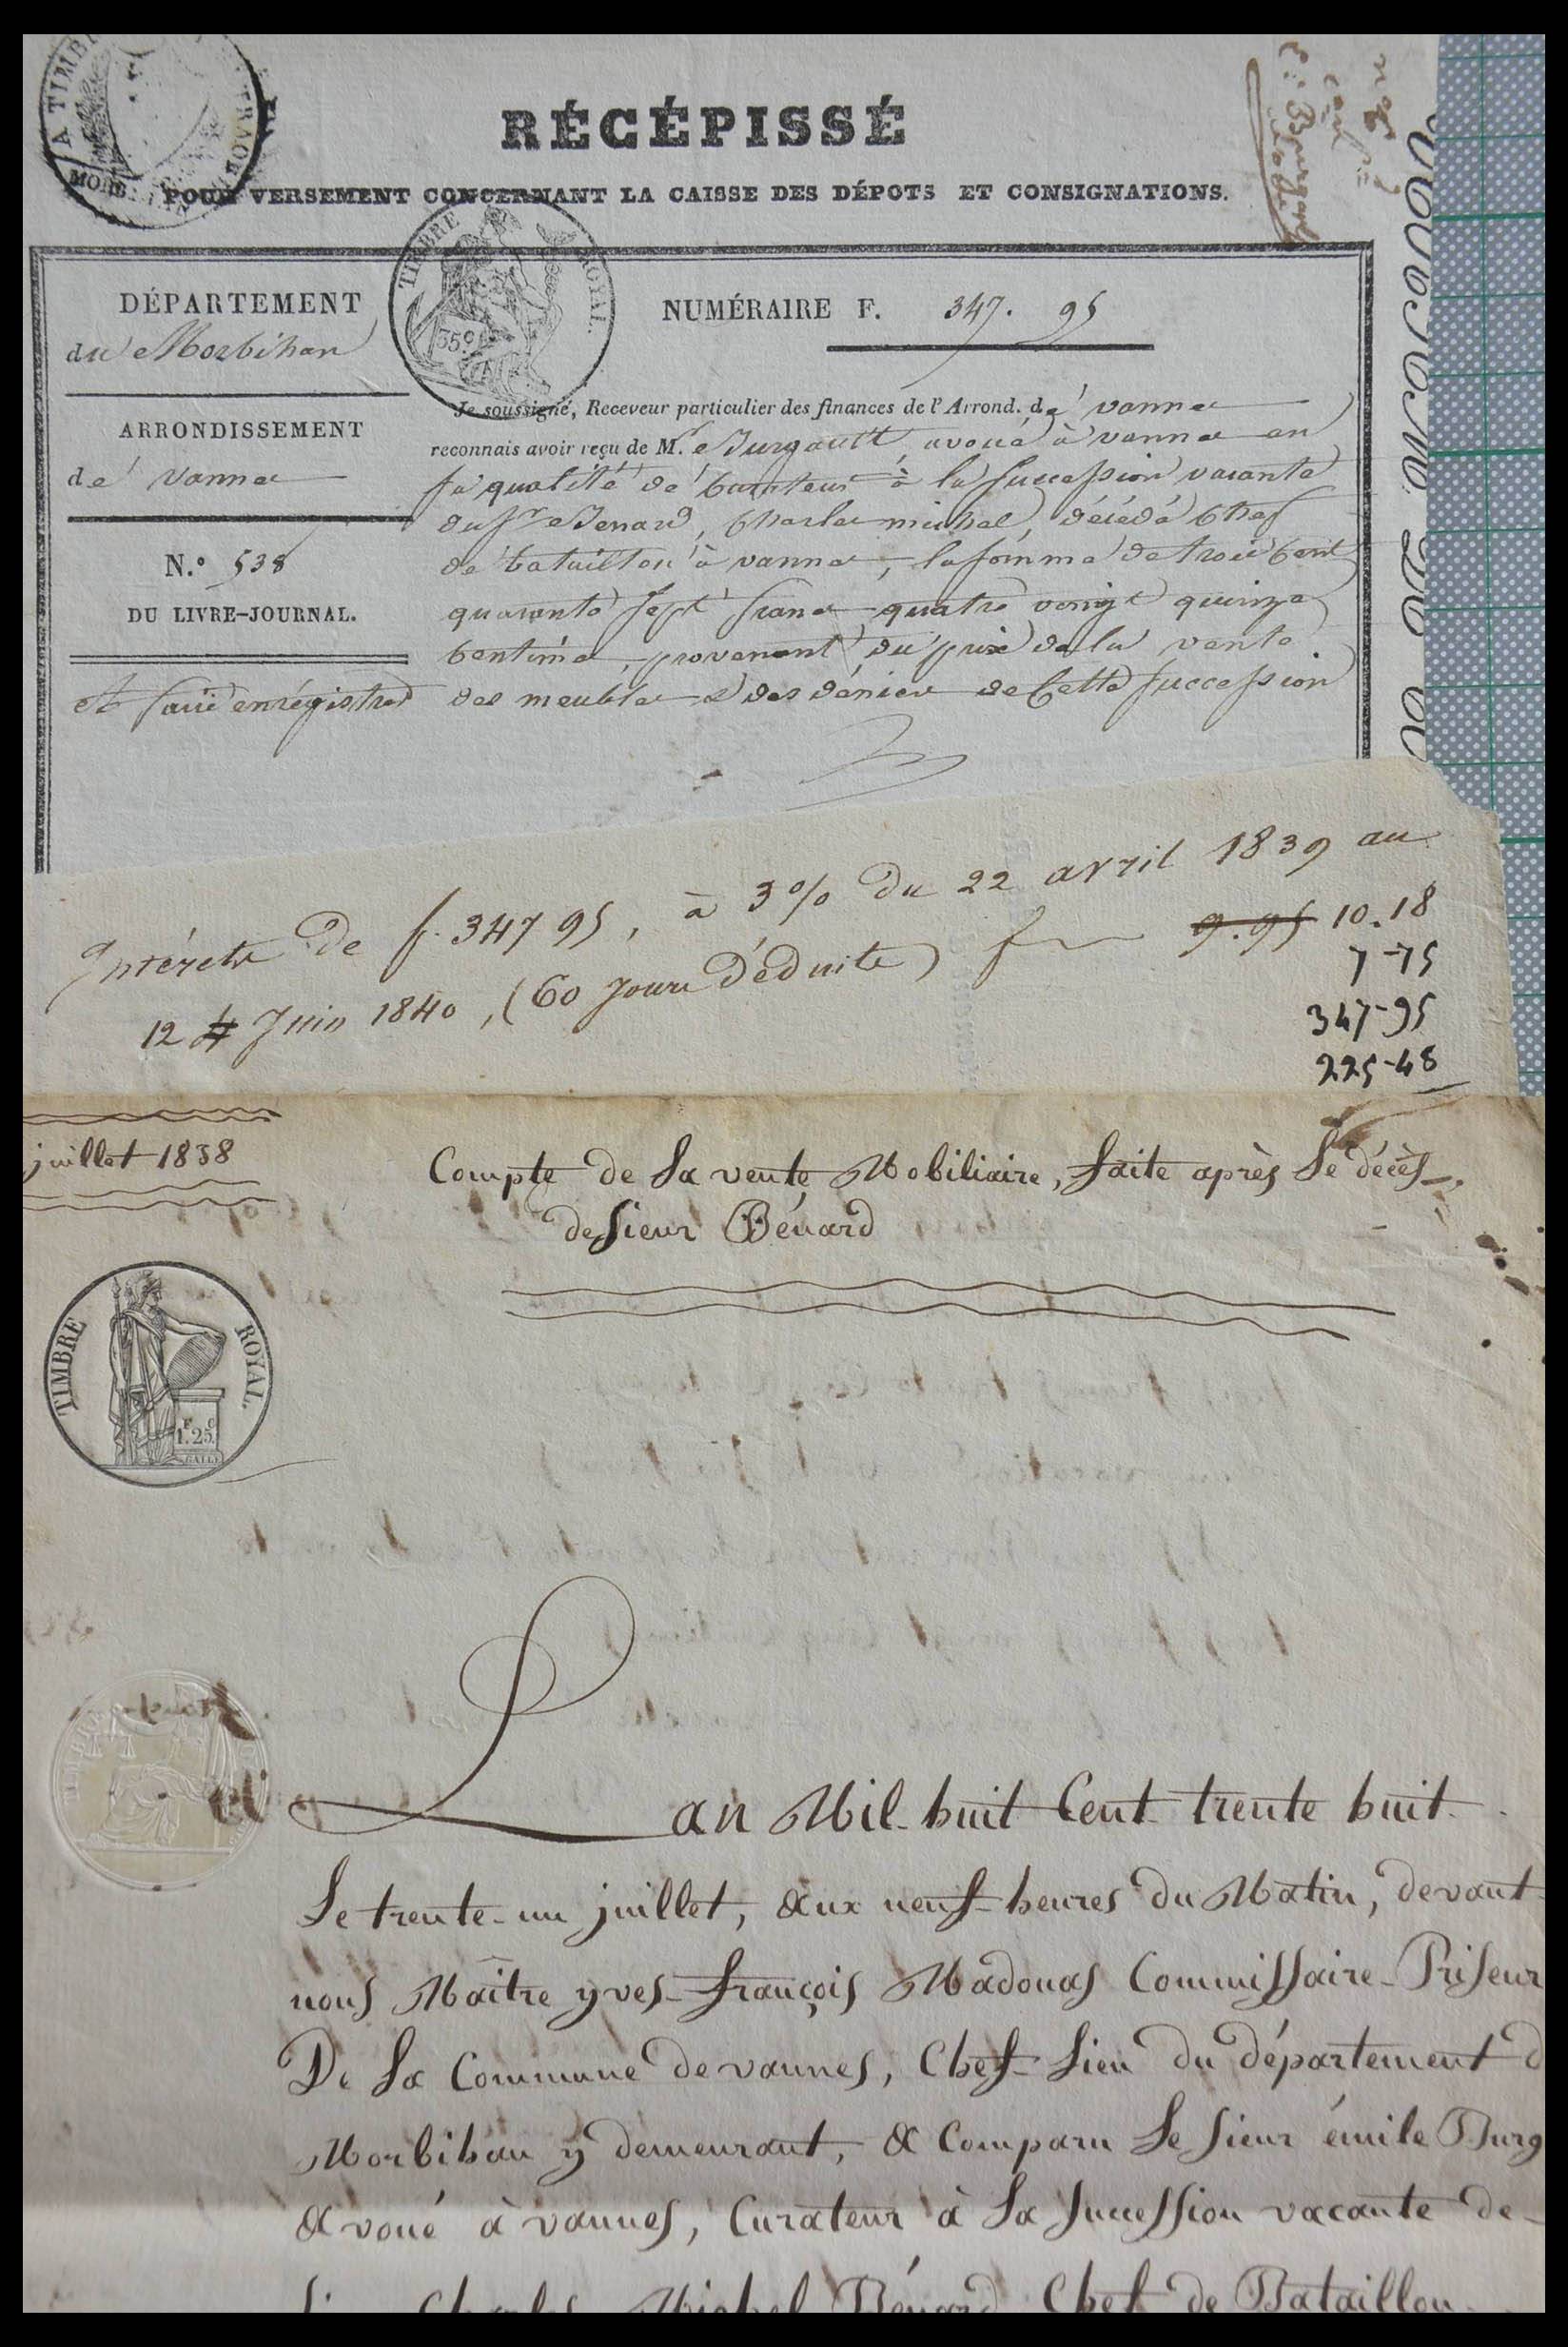 A TIMBRE
RÉCÉPISSÉ
POUR VERSEMENT CONCERNANT LA CAISSE DES DÉPOTS ET CONSIGNATIONS.
TIMBRE ROYAL
35c
DÉPARTEMENT
du Morbihan
ARRONDISSEMENT
de Vannes
N.º 538
DU LIVRE-JOURNAL.
et faire enrégistrer
NUMÉRAIRE F. 347. 95
Je soussigné, Receveur particulier des finances de l'Arrond. de vannes
reconnais avoir reçu de M.r Burgault, avoué à vannes en
sa qualité de curateur à la succession vacante
du Sr Benard, Charles michel, décédé Chef
de bataillon à vannes, la somme de trois Cent
quarante sept francs quatre vingt quinze
Centimes, provenant du prix de la vente
des meubles & des déniers de Cette succession
Intérêts de f. 347 95, à 3% du 22 avril 1839 au
12 Juin 1840, (60 jours Déduits) f 9.95 10.18
7-75
347-95
225-48
juillet 1838
Compte de la vente Mobiliaire, faite après le décès
de Sieur Bénard
TIMBRE ROYAL
1.F 25.c
Lan Mil huit Cent trente huit
Le trente-un juillet, aux neuf heures du Matin, devant
nous Maître yves-françois Madouas Commissaire-Priseur
De la Commune de vannes, Chef-lieu du département d
Morbihan y demeurant, a Comparu le sieur émile Burg
avoué à vannes, Curateur à la succession vacante de
Sieur Charles Michel Bénard Chef de Bataillon